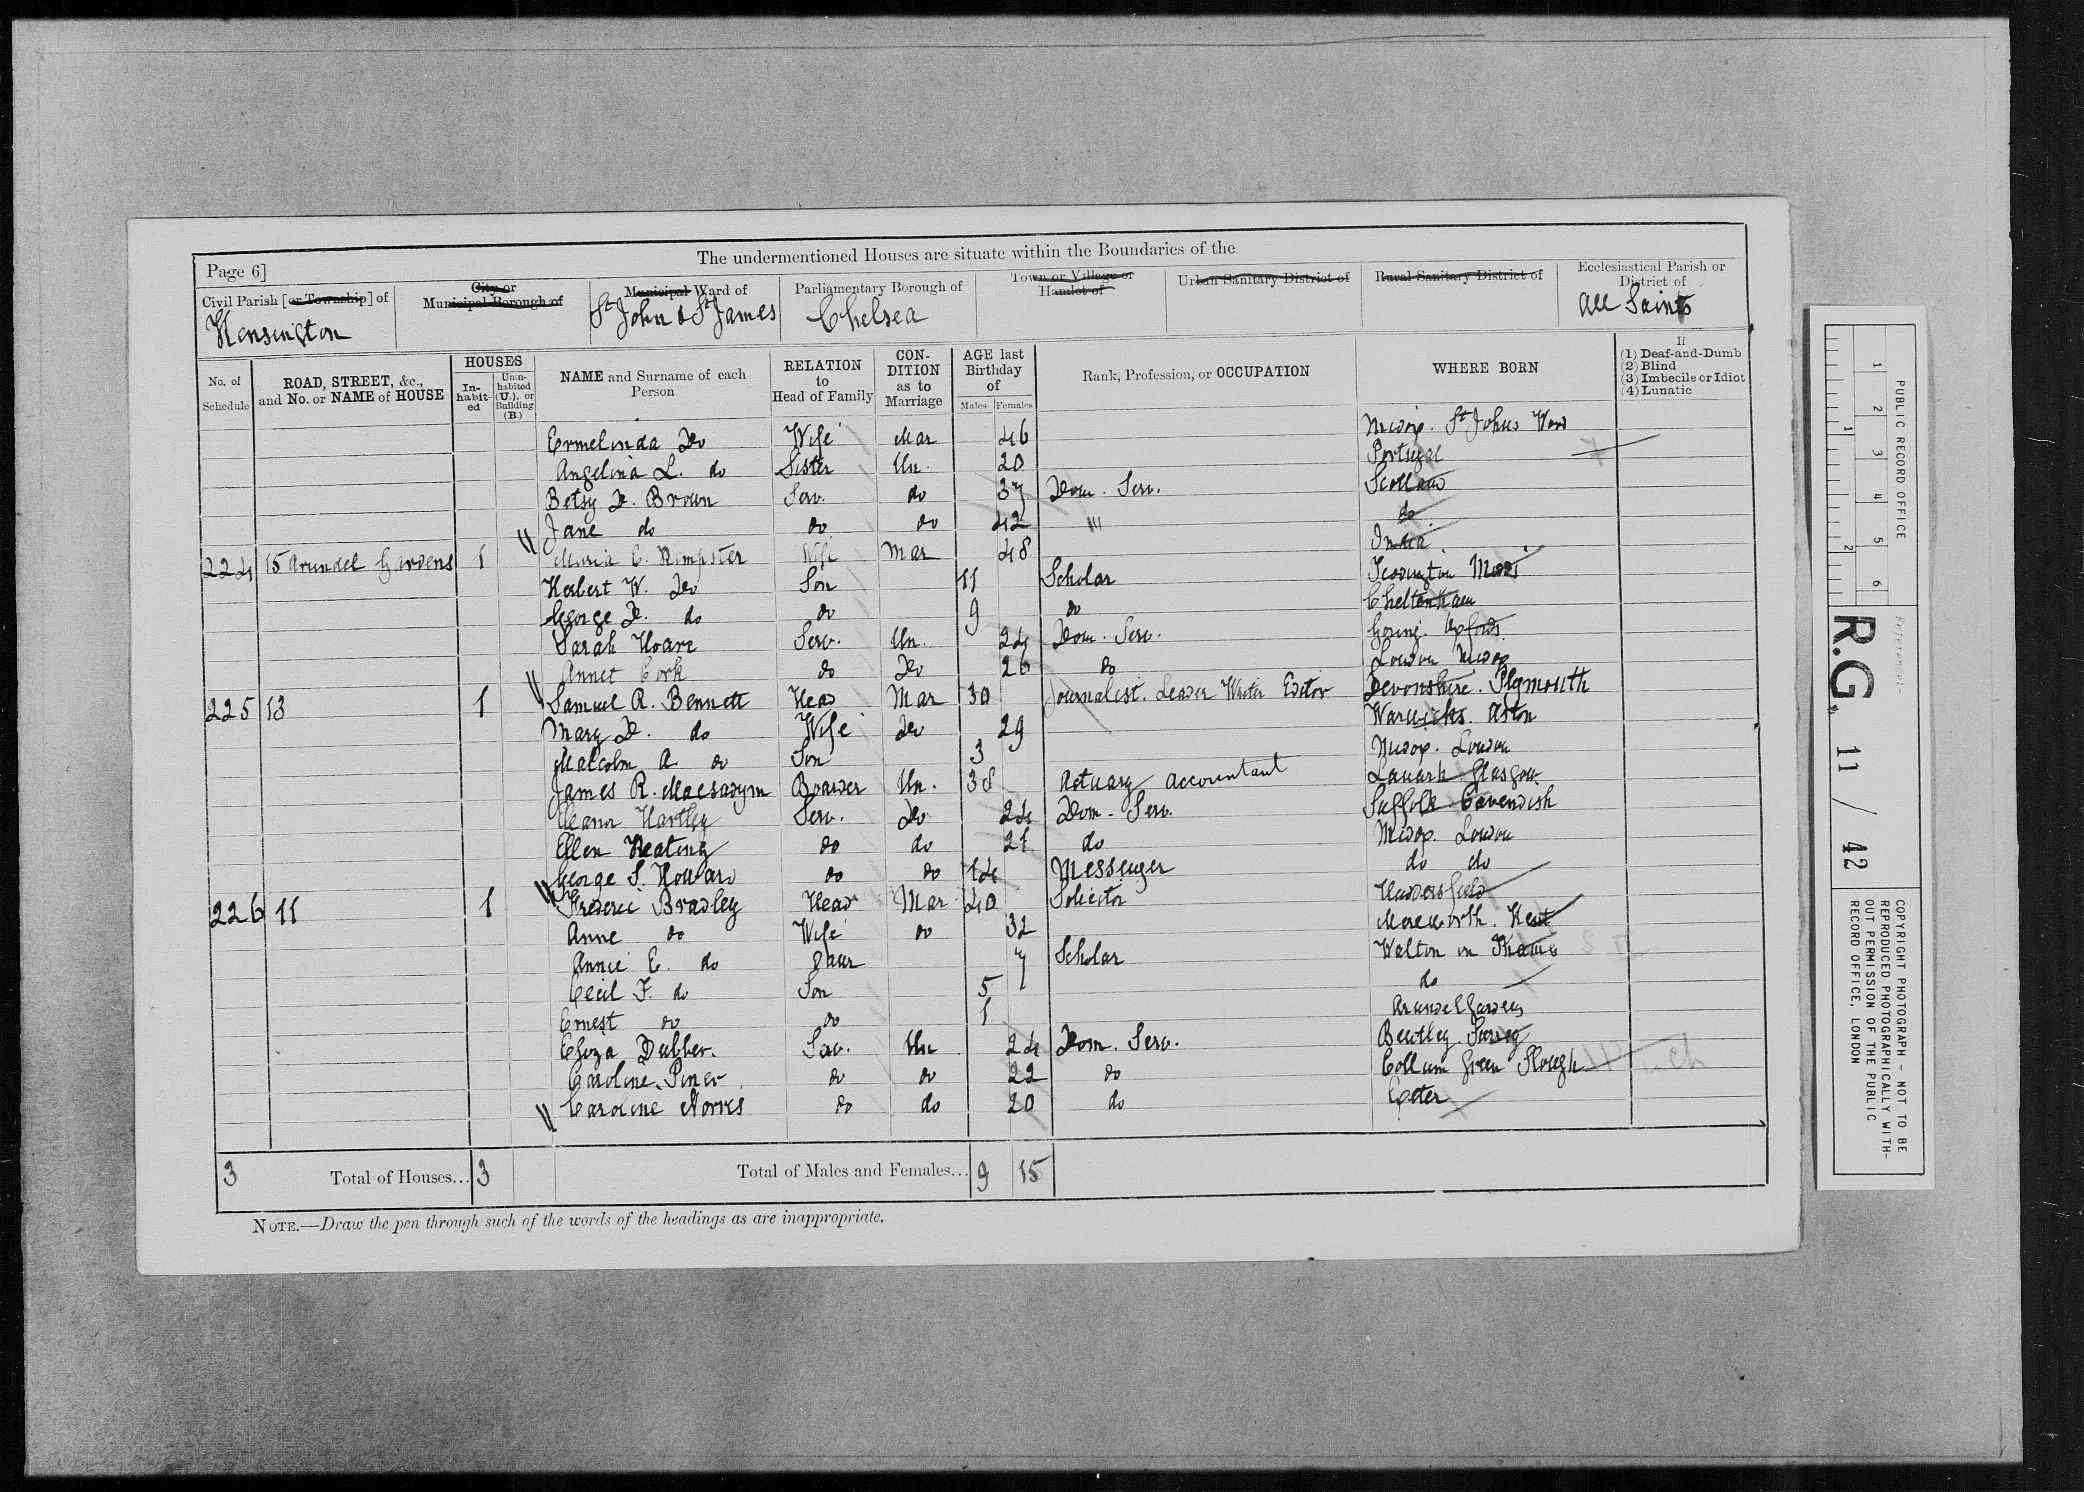 The undermentioned Houses are situate within the Boundaries of the
Page 6]
Civil Parish [or Township] of
Kensington
City or
Municipal Borough of
Municipal Ward of
St John & St James
Parliamentary Borough of
Chelsea
Town or Village or
Hamlet of
Urban Sanitary District of
Rural Sanitary District of
Ecclesiastical Parish or
District of
All Saints
No. of
Schedule
ROAD, STREET, &c.,
and No. or NAME of HOUSE
HOUSES
In-
habit-
ed
Unin-
habited
(U.), or
Building
(B.)
NAME and Surname of each
Person
RELATION
to
Head of Family
CON-
DITION
as to
Marriage
AGE last
Birthday
of
Males Females
Rank, Profession, or OCCUPATION
WHERE BORN
If
(1) Deaf-and-Dumb
(2) Blind
(3) Imbecile or Idiot
(4) Lunatic
Ermelinda Do Wife Mar 46 Midx. St Johns Wood
Angelina L. do Sister Un. 20 Portugal
Betsy D. Brown Serv. do 37 Dom. Serv. Scotland
Jane do do do 42 do
224 15 Arundel Gardens 1 Maria C. Wife Mar 48 India
Herbert W. Do Son 11 Scholar Teddington Midds
George D. do do 9 do Cheltenham
Sarah Hoare Serv. Un. 24 Dom. Serv. Goring. Oxfords.
Annet Cock do Do 26 do London Midx
225 13 1 Samuel R. Bennett Head Mar 30 Journalist. Leader Writer Editor Devonshire. Plymouth
Mary D. do Wife Do 29 Warwicks. Aston
Malcolm A do Son 3 Midx. London
James R. Macfadym Boarder Un. 38 Actuary Accountant Lanark Glasgow
Eleanor Hartley Serv. Do 24 Dom. Serv. Suffolk Cavendish
Ellen Keating do do 21 do Midx. London
George S. Howard do do 14 Messenger do do
226 11 1 Frederic Bradley Head Mar 40 Solicitor Huddersfield
Anne do Wife do 32 Mereworth. Kent
Annie E. do Daur 7 Scholar Walton on Thames
Cecil F. do Son 5 do
Ernest do do 1 Arundel Gardens
Eliza Dubber. Serv. Un 24 Dom. Serv. Bentley Surrey
Caroline Piner do do 22 do Collum Green Slough
Caroline Norris do do 20 do Exeter
3 Total of Houses... 3 Total of Males and Females... 9 15
NOTE.—Draw the pen through such of the words of the headings as are inappropriate.
PUBLIC RECORD OFFICE
1 2 3 4 5 6
1 2
Reference:-
R.G. 11 / 42
COPYRIGHT PHOTOGRAPH - NOT TO BE
REPRODUCED PHOTOGRAPHICALLY WITH-
OUT PERMISSION OF THE PUBLIC
RECORD OFFICE, LONDON